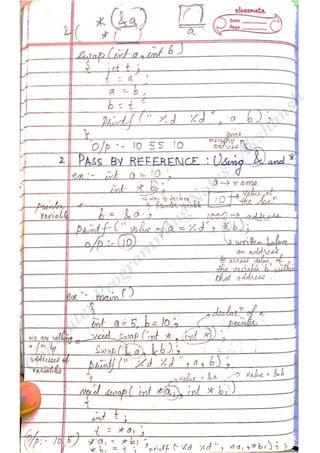 * (&a)
2( * (
a
classmate
Date
Page
swap(int a, int b)
{ int t;
t = a;
a = b;
b = t;
printf(" %d %d", a, b);
}
O/p :- 10 55 10
gives memory address
2 PASS BY REFERENCE : Using & and *
ex:- int a = 10;
int * b;
a → name
way to declare pointer variable
10 → value at the loc"
pointer variable
b = &a;
1000 → address
printf("value of a = %d", *b);
o/p:- (10)
written before an address
to access value of
the variable 'b' within
that address.
ex:- main()
{
declar" of a pointer
int a=5, b=10;
void swap(int *, int *);
we are calling a f" by addresses of variables
swap(&a, &b);
printf("%d %d", a, b);
}
value = &a
value = &b
void swap(int *a, int *b)
{
int t;
t = *a;
(O/p:- 10,5) *a = *b;
*b = t; printf("%d %d", *a, *b); }